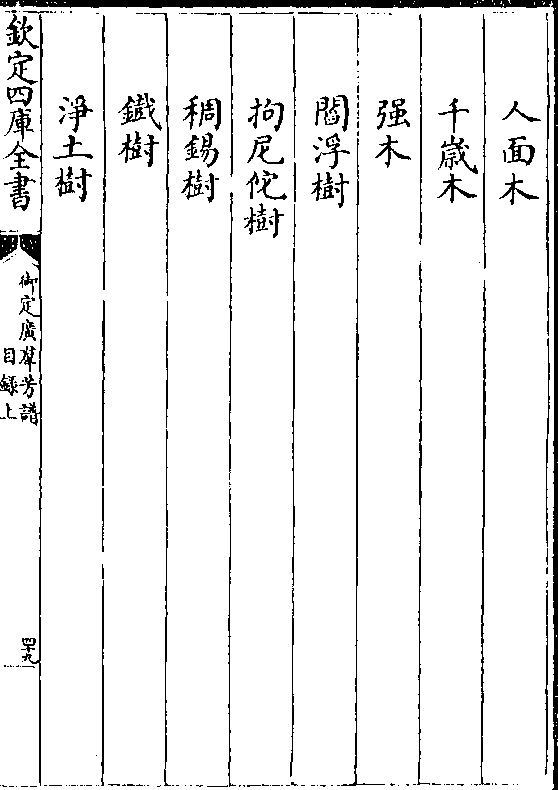 人面木
千嵗木
强木
閻浮樹
拘尼佗樹
稠錫樹
鐵樹
淨土樹
欽定四庫全書
御定廣羣芳譜
目錄上
四十九